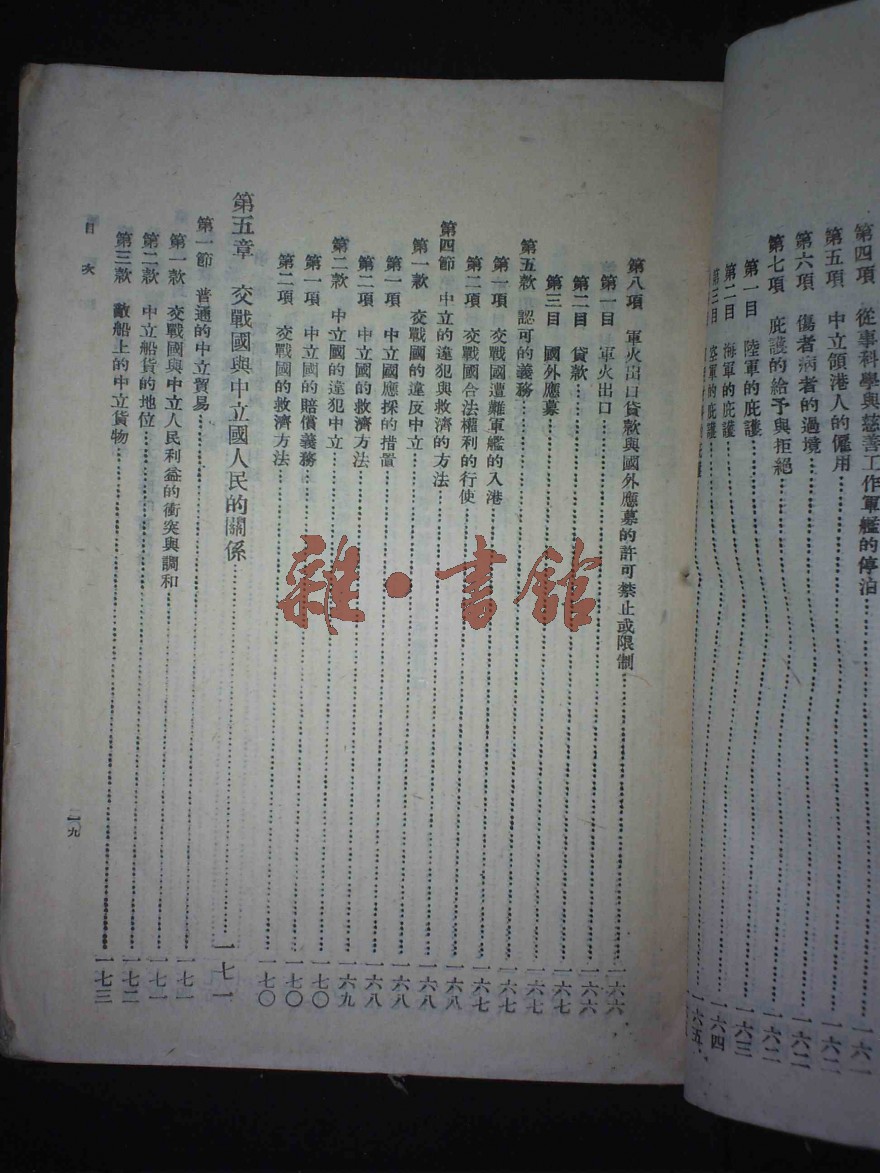 第四項　從事科學與慈善工作軍艦的停泊……一六一
第五項　中立領港人的僱用……一六二
第六項　傷者病者的過境……一六二
第七項　庇護的給予與拒絕……一六二
第一目　陸軍的庇護……一六三
第二目　海軍的庇護……一六四
第三目　空軍的庇護……一六五
第八項　軍火出口貸款與國外應募的許可禁止或限制……一六六
第一目　軍火出口……一六六
第二目　貸款……一六六
第三目　國外應募……一六七
第五款　認可的義務……一六七
第一項　交戰國遭難軍艦的入港……一六七
第二項　交戰國合法權利的行使……一六七
第四節　中立的違犯與救濟的方法……一六八
第一款　交戰國的違反中立……一六八
第一項　中立國應採的措置……一六八
第二項　中立國的救濟方法……一六八
第二款　中立國的違犯中立……一六九
第一項　中立國的賠償義務……一七〇
第二項　交戰國的救濟方法……一七〇
第五章　交戰國與中立國人民的關係……一七一
第一節　普通的中立貿易……一七一
第一款　交戰國與中立人民利益的衝突與調和……一七一
第二款　中立船貨的地位……一七二
第三款　敵船上的中立貨物……一七三
目次
二九
雜·書館